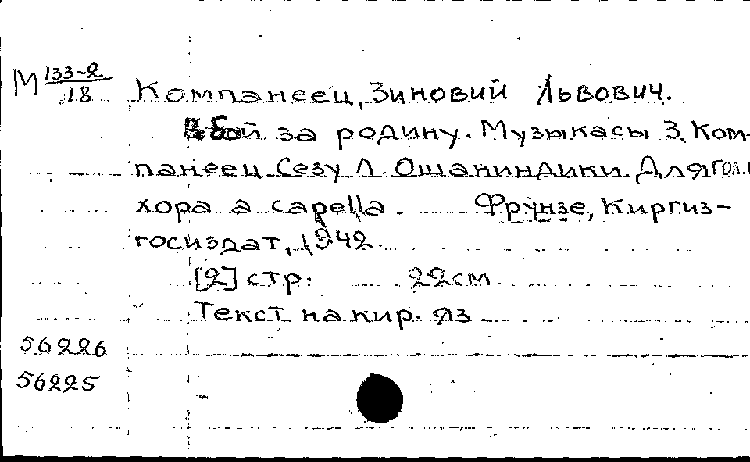 М 133-2/18 Компанеец, Зиновий Львович.
В бой за родину. Музыкасы З. Ком-
панеец. Сезу Л. Ошаниндики. Для гол.
хора a capella. Фрунзе, Киргиз-
госиздат, 1942
[2] стр. 22см
Текст на кир. яз
56226
56225